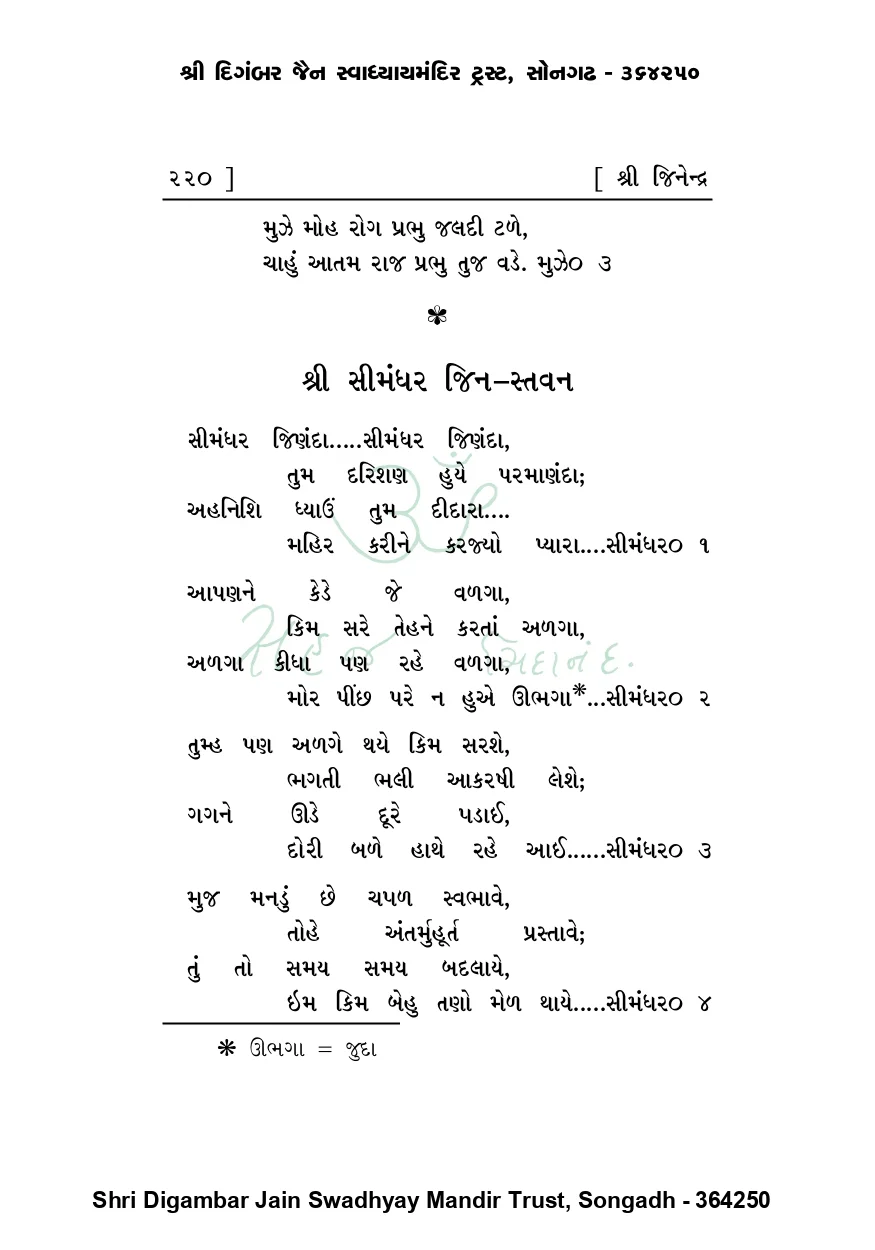 શ્રી દિગંબર જૈન સ્વાધ્યાયમંદિર ટ્રસ્ટ, સોનગઢ - ૩૬૪૨૫૦
૨૨૦ ] [ શ્રી જિનેન્દ્ર
મુઝે મોહ રોગ પ્રભુ જલદી ટળે,
ચાહું આતમ રાજ પ્રભુ તુજ વડે. મુઝે૦ ૩
✽
શ્રી સીમંધર જિન–સ્તવન
સીમંધર જિણંદા.....સીમંધર જિણંદા,
તુમ દરિશણ હુયે પરમાણંદા;
અહનિશિ ધ્યાઉં તુમ દીદારા....
મહિર કરીને કરજ્યો પ્યારા....સીમંધર૦ ૧
આપણને કેડે જે વળગા,
કિમ સરે તેહને કરતાં અળગા,
સહજ ચિદાનંદ.
અળગા કીધા પણ રહે વળગા,
મોર પીંછ પરે ન હુએ ઊભગા❋...સીમંધર૦ ૨
તુમ્હ પણ અળગે થયે કિમ સરશે,
ભગતી ભલી આકરષી લેશે;
ગગને ઊડે દૂરે પડાઈ,
દોરી બળે હાથે રહે આઈ......સીમંધર૦ ૩
મુજ મનડું છે ચપળ સ્વભાવે,
તોહે અંતર્મુહૂર્ત પ્રસ્તાવે;
તું તો સમય સમય બદલાયે,
ઇમ કિમ બેહુ તણો મેળ થાયે.....સીમંધર૦ ૪
❋ ઊભગા = જુદા
Shri Digambar Jain Swadhyay Mandir Trust, Songadh - 364250